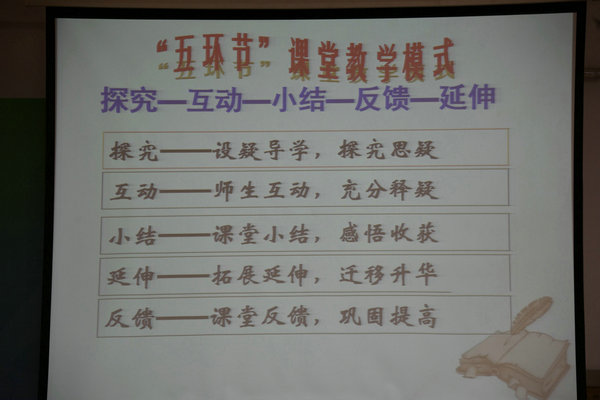 “五环节”课堂教学模式
探究—互动—小结—反馈—延伸
探究——设疑导学，探究思疑
互动——师生互动，充分释疑
小结——课堂小结，感悟收获
延伸——拓展延伸，迁移升华
反馈——课堂反馈，巩固提高